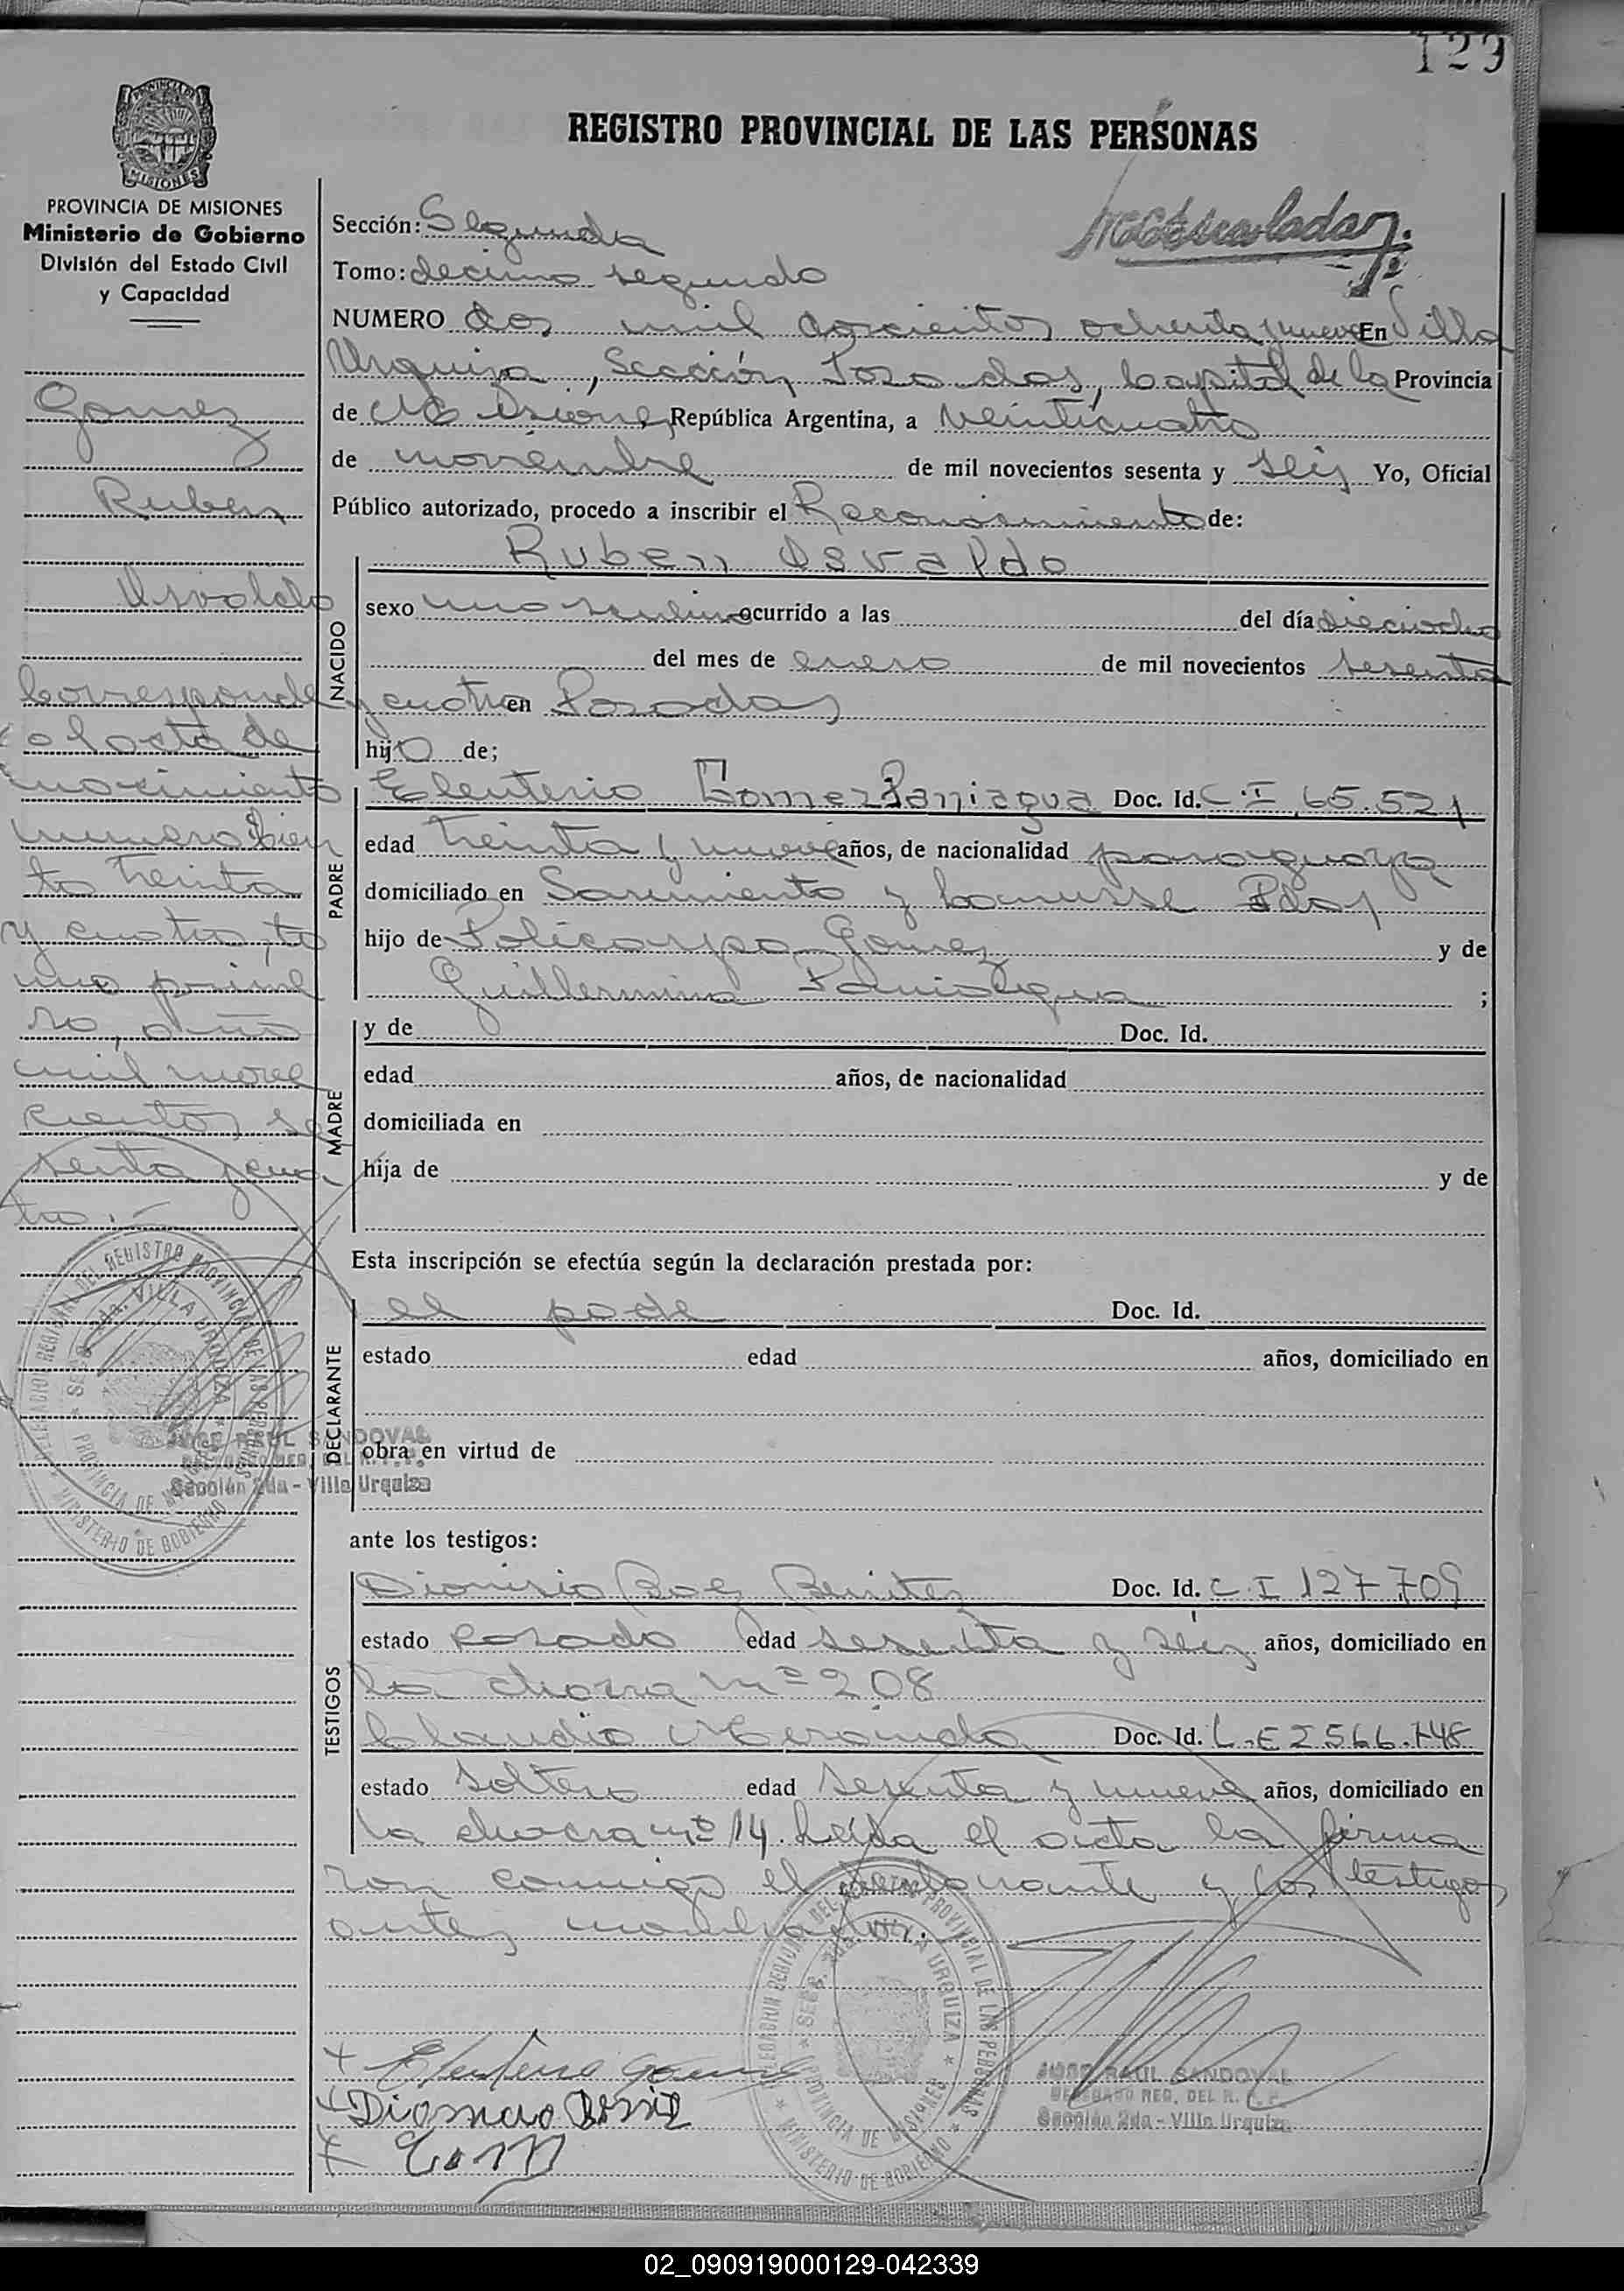 129
REGISTRO PROVINCIAL DE LAS PERSONAS
PROVINCIA DE
MISIONES
PROVINCIA DE MISIONES
Ministerio de Gobierno
División del Estado Civil
y Capacidad
Gomez
Ruben
Osvaldo
Corresponde
al acta de
nacimiento
numero cien
to treinta
y cuatro, to
mo prime
ro, año
mil nove
cientos se
senta y cua
tro.-
Sección: Segunda
Tomo: decimo segundo
NUMERO dos mil doscientos ochenta y nueve En Villa
Urquiza, Sección Posadas, Capital de la Provincia
de Misiones, República Argentina, a veinticuatro
de noviembre de mil novecientos sesenta y seis Yo, Oficial
Público autorizado, procedo a inscribir el Reconosimiento de:
NACIDO
Ruben Osvaldo
sexo masculino ocurrido a las del día dieciocho
del mes de enero de mil novecientos sesenta
y cuatro en Posadas
hijo de;
PADRE
Eleuterio Gomez Paniagua Doc. Id. C.I 65.521
edad treinta y nueve años, de nacionalidad paraguaya
domiciliado en Sarmiento y Lanusse Pdas
hijo de Policarpo Gomez y de
Guillermina Paniagua ;
MADRE
y de Doc. Id.
edad años, de nacionalidad
domiciliada en
hija de y de
Esta inscripción se efectúa según la declaración prestada por:
DECLARANTE
el padre Doc. Id.
estado edad años, domiciliado en
obra en virtud de
ante los testigos:
TESTIGOS
Dionisio Benitez Doc. Id. C.I 127709
estado casado edad sesenta y seis años, domiciliado en
la chacra nº 208
Claudio Doc. Id. L.E 2566.748
estado soltero edad sesenta y nueve años, domiciliado en
la chacra nº 14. Leída el acta la firma
ron conmigo el declarante y los testigos
antes nombrados.
DELEGACION REGIONAL DEL REGISTRO PROVINCIAL DE LAS PERSONAS
SECC. 2da. VILLA URQUIZA
PROVINCIA DE MISIONES
MINISTERIO DE GOBIERNO
JOSE RAUL SANDOVAL
DELEGADO REG. DEL R. P. P.
Sección 2da - Villa Urquiza
Eleuterio Gomez
DELEGACION REGIONAL DEL REGISTRO PROVINCIAL DE LAS PERSONAS
SECC. 2da. VILLA URQUIZA
PROVINCIA DE MISIONES
MINISTERIO DE GOBIERNO
JOSE RAUL SANDOVAL
DELEGADO REG. DEL R. P. P.
Sección 2da - Villa Urquiza
02_090919000129-042339